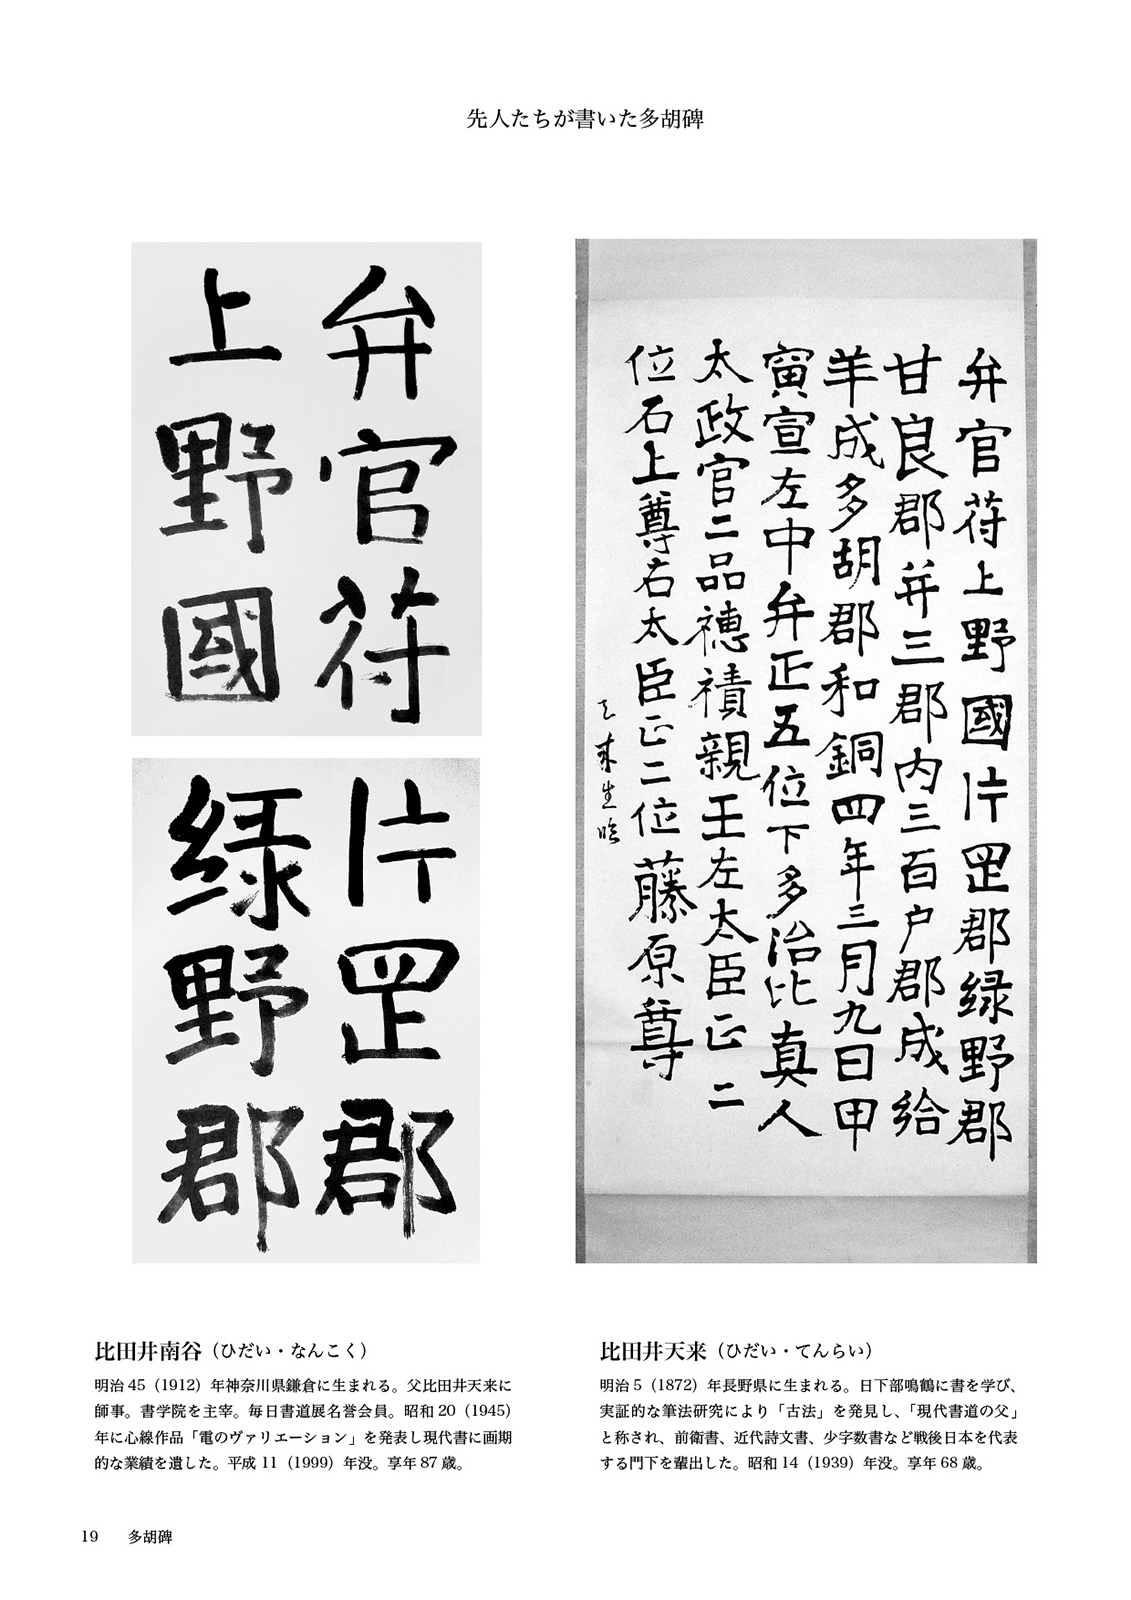 先人たちが書いた多胡碑
弁官符上野國片罡郡緑野郡
甘良郡并三郡内三百戸郡成給
羊成多胡郡和銅四年三月九日甲
寅宣左中弁正五位下多治比真人
太政官二品穂積親王左太臣正二
位石上尊右太臣正二位藤原尊
天来生臨
弁官符
上野國
片罡郡
緑野郡
比田井天来（ひだい・てんらい）
明治5（1872）年長野県に生まれる。日下部鳴鶴に書を学び、
実証的な筆法研究により「古法」を発見し、「現代書道の父」
と称され、前衛書、近代詩文書、少字数書など戦後日本を代表
する門下を輩出した。昭和14（1939）年没。享年68歳。
比田井南谷（ひだい・なんこく）
明治45（1912）年神奈川県鎌倉に生まれる。父比田井天来に
師事。書学院を主宰。毎日書道展名誉会員。昭和20（1945）
年に心線作品「電のヴァリエーション」を発表し現代書に画期
的な業績を遺した。平成11（1999）年没。享年87歳。
19 多胡碑